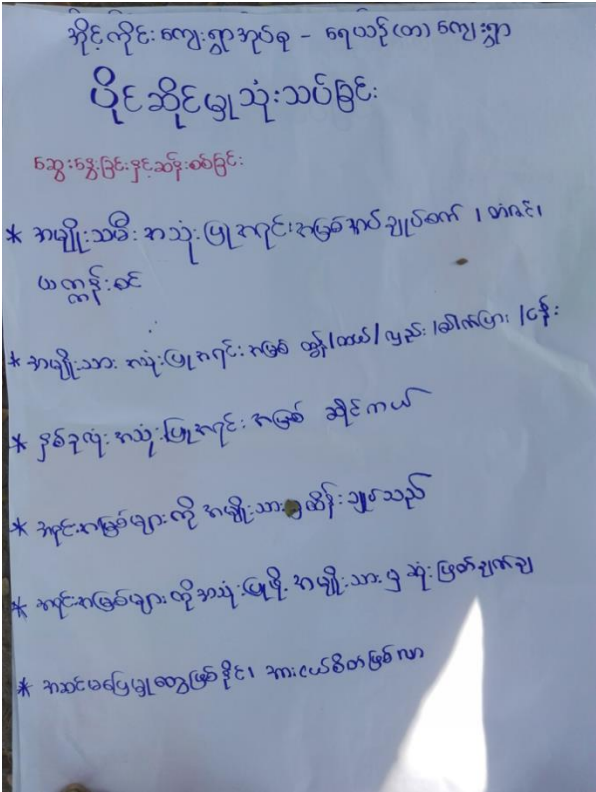 အိုင့်ကိုင်းကျေးရွာအုပ်စု - ရေယဉ်(တ) ကျေးရွာ
ပိုင်ဆိုင်မှုသုံးသပ်ခြင်း
ဆွေးနွေးခြင်းနှင့်ဆန်းစစ်ခြင်း
* အမျိုးသမီး အသုံးပြုအရင်းအမြစ်အပ်ချုပ်စက် ၊ တံစဉ်၊
ယက္ကန်းစင်
* အမျိုးသား အသုံးပြုအရင်းအမြစ် ထွန်/ထယ်/လှည်း /ပေါက်ပြား /ငန်း
* နှစ်ခုလုံးအသုံးပြုအရင်းအမြစ် ဆိုင်ကယ်
* အရင်းအမြစ်များကို အမျိုးသားမှထိန်းချုပ်သည်
* အရင်းအမြစ်များကိုအသုံးပြုဖို့ အမျိုးသားမှ ဆုံးဖြတ်ချက်ချ
* အဆင်မပြေမှုတွေဖြစ်နိုင်၊ အားငယ်စိတ်ဖြစ်လာ